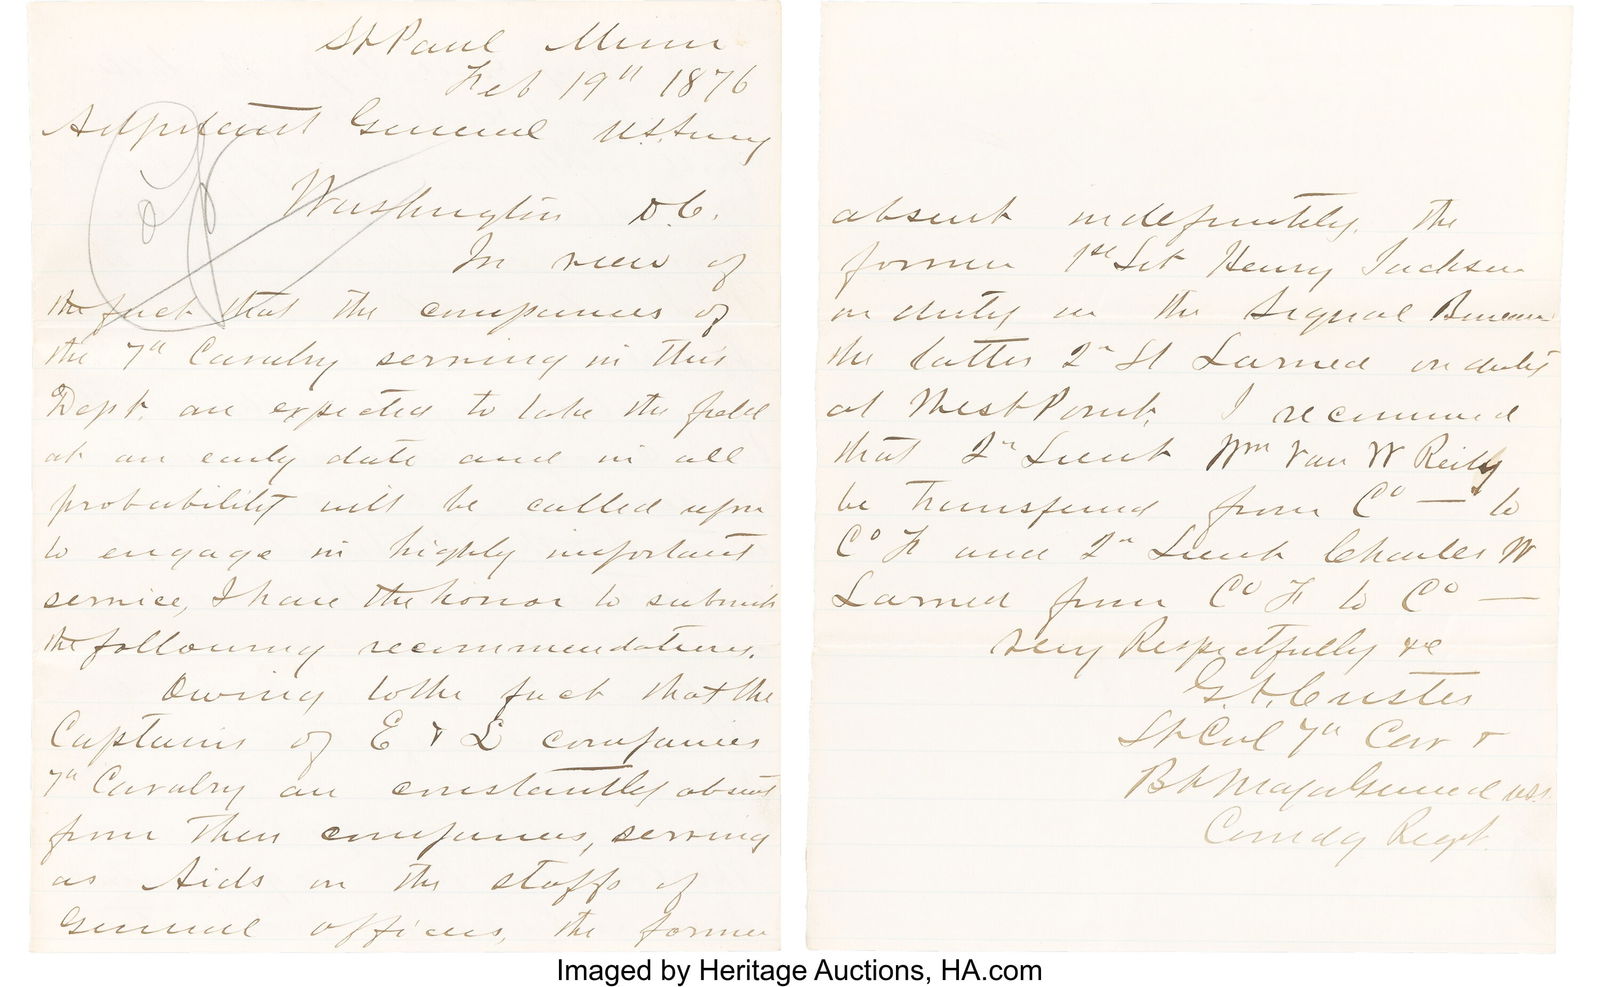 St Paul Minn
Feb 19th 1876
Adjutant General U.S. Army
Washington D.C.
In view of
the fact that the companies of
the 7th Cavalry serving in this
Dept. are expected to take the field
at an early date and in all
probability will be called upon
to engage in highly important
service, I have the honor to submit
the following recommendations.
Owing to the fact that the
Captains of E & L companies
7th Cavalry are constantly absent
from their companies, serving
as Aids on the staffs of
General officers, the former
absent indefinitely. the
former 1st Lt Henry Jackson
on duty in the Signal Bureau
the latter 2n Lt Larned on duty
at West Point. I recommend
that 2n Lieut Wm Van W Reily
be transferred from Co — to
Co F and 2n Lieut Charles W
Larned from Co F to Co —
Very Respectfully &c
G.A. Custer
Lt Col 7th Cav &
Bt Major General USA
Comdg Regt.
Imaged by Heritage Auctions, HA.com